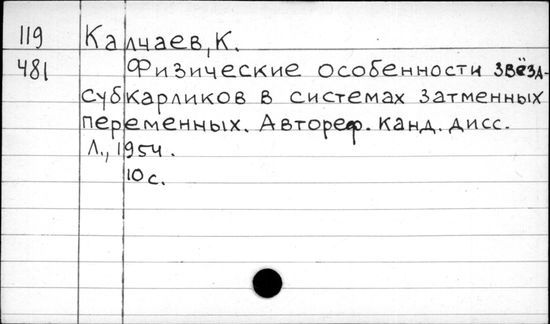 119 Калчаев, К.
481 Физические особенности звёзд-
субкарликов в системах затменных
переменных. Автореф. канд. дисс.
Л., 1954.
10 с.